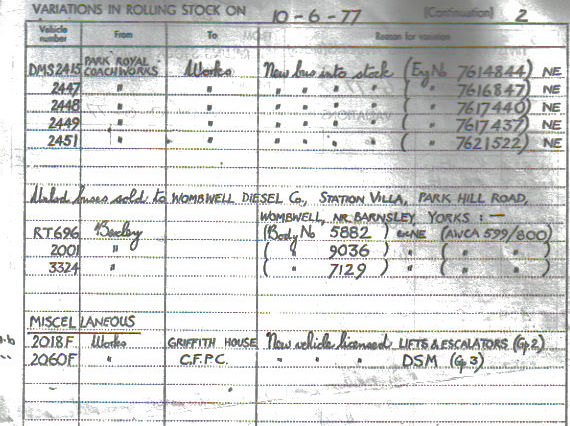 VARIATIONS IN ROLLING STOCK ON 10-6-77 (Continuation) 2
Vehicle number From To Reason for variation
DMS2415 PARK ROYAL COACHWORKS Works New bus into stock (Eng No 7614844) NE
2447 " " " " " " ( " 7616847) NE
2448 " " " " " " ( " 7617440) NE
2449 " " " " " " ( " 7617437) NE
2451 " " " " " " ( " 7621522) NE
buses sold to WOMBWELL DIESEL Co, STATION VILLA, PARK HILL ROAD,
WOMBWELL, NR. BARNSLEY, YORKS : —
RT696 Bexley (Body No 5882) NE (AWCA 599/800)
2001 " ( " 9036) " ( " " )
3324 " ( " 7129) " ( " " )
MISCELLANEOUS
2018F Works GRIFFITH HOUSE New vehicle licensed LIFTS & ESCALATORS (Gp 2)
2060F " C.F.P.C. " " " DSM (Gp 3)